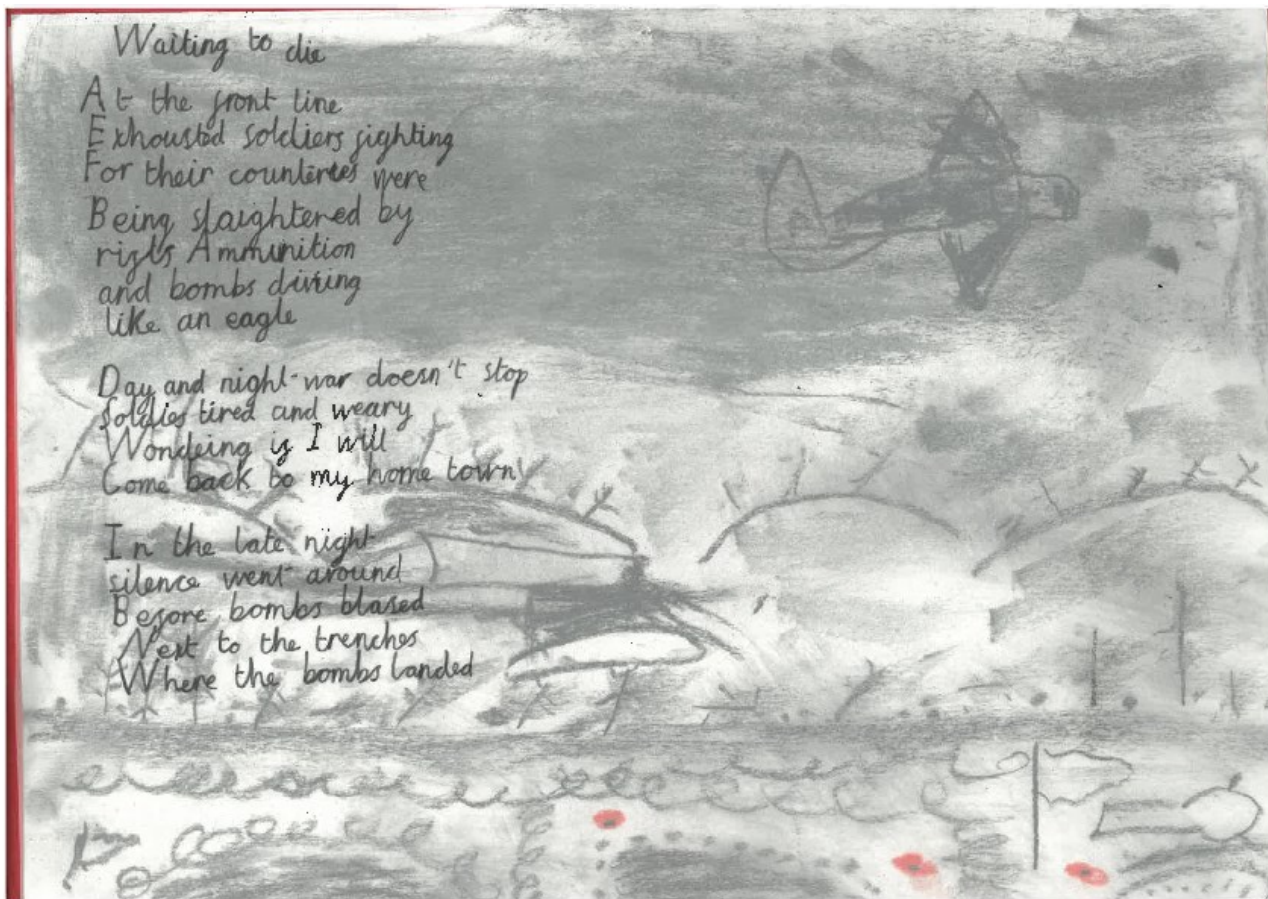 Waiting to die
At the front line
Exhousted soldiers fighting
For their counteries were
Being slaightered by
rifls Ammunition
and bombs diving
like an eagle
Day and night-war doesn't stop
Soldies tired and weary
Wondeing if I will
Come back to my home town
In the late night
silence went around
Before bombs blased
Next to the trenches
Where the bombs landed